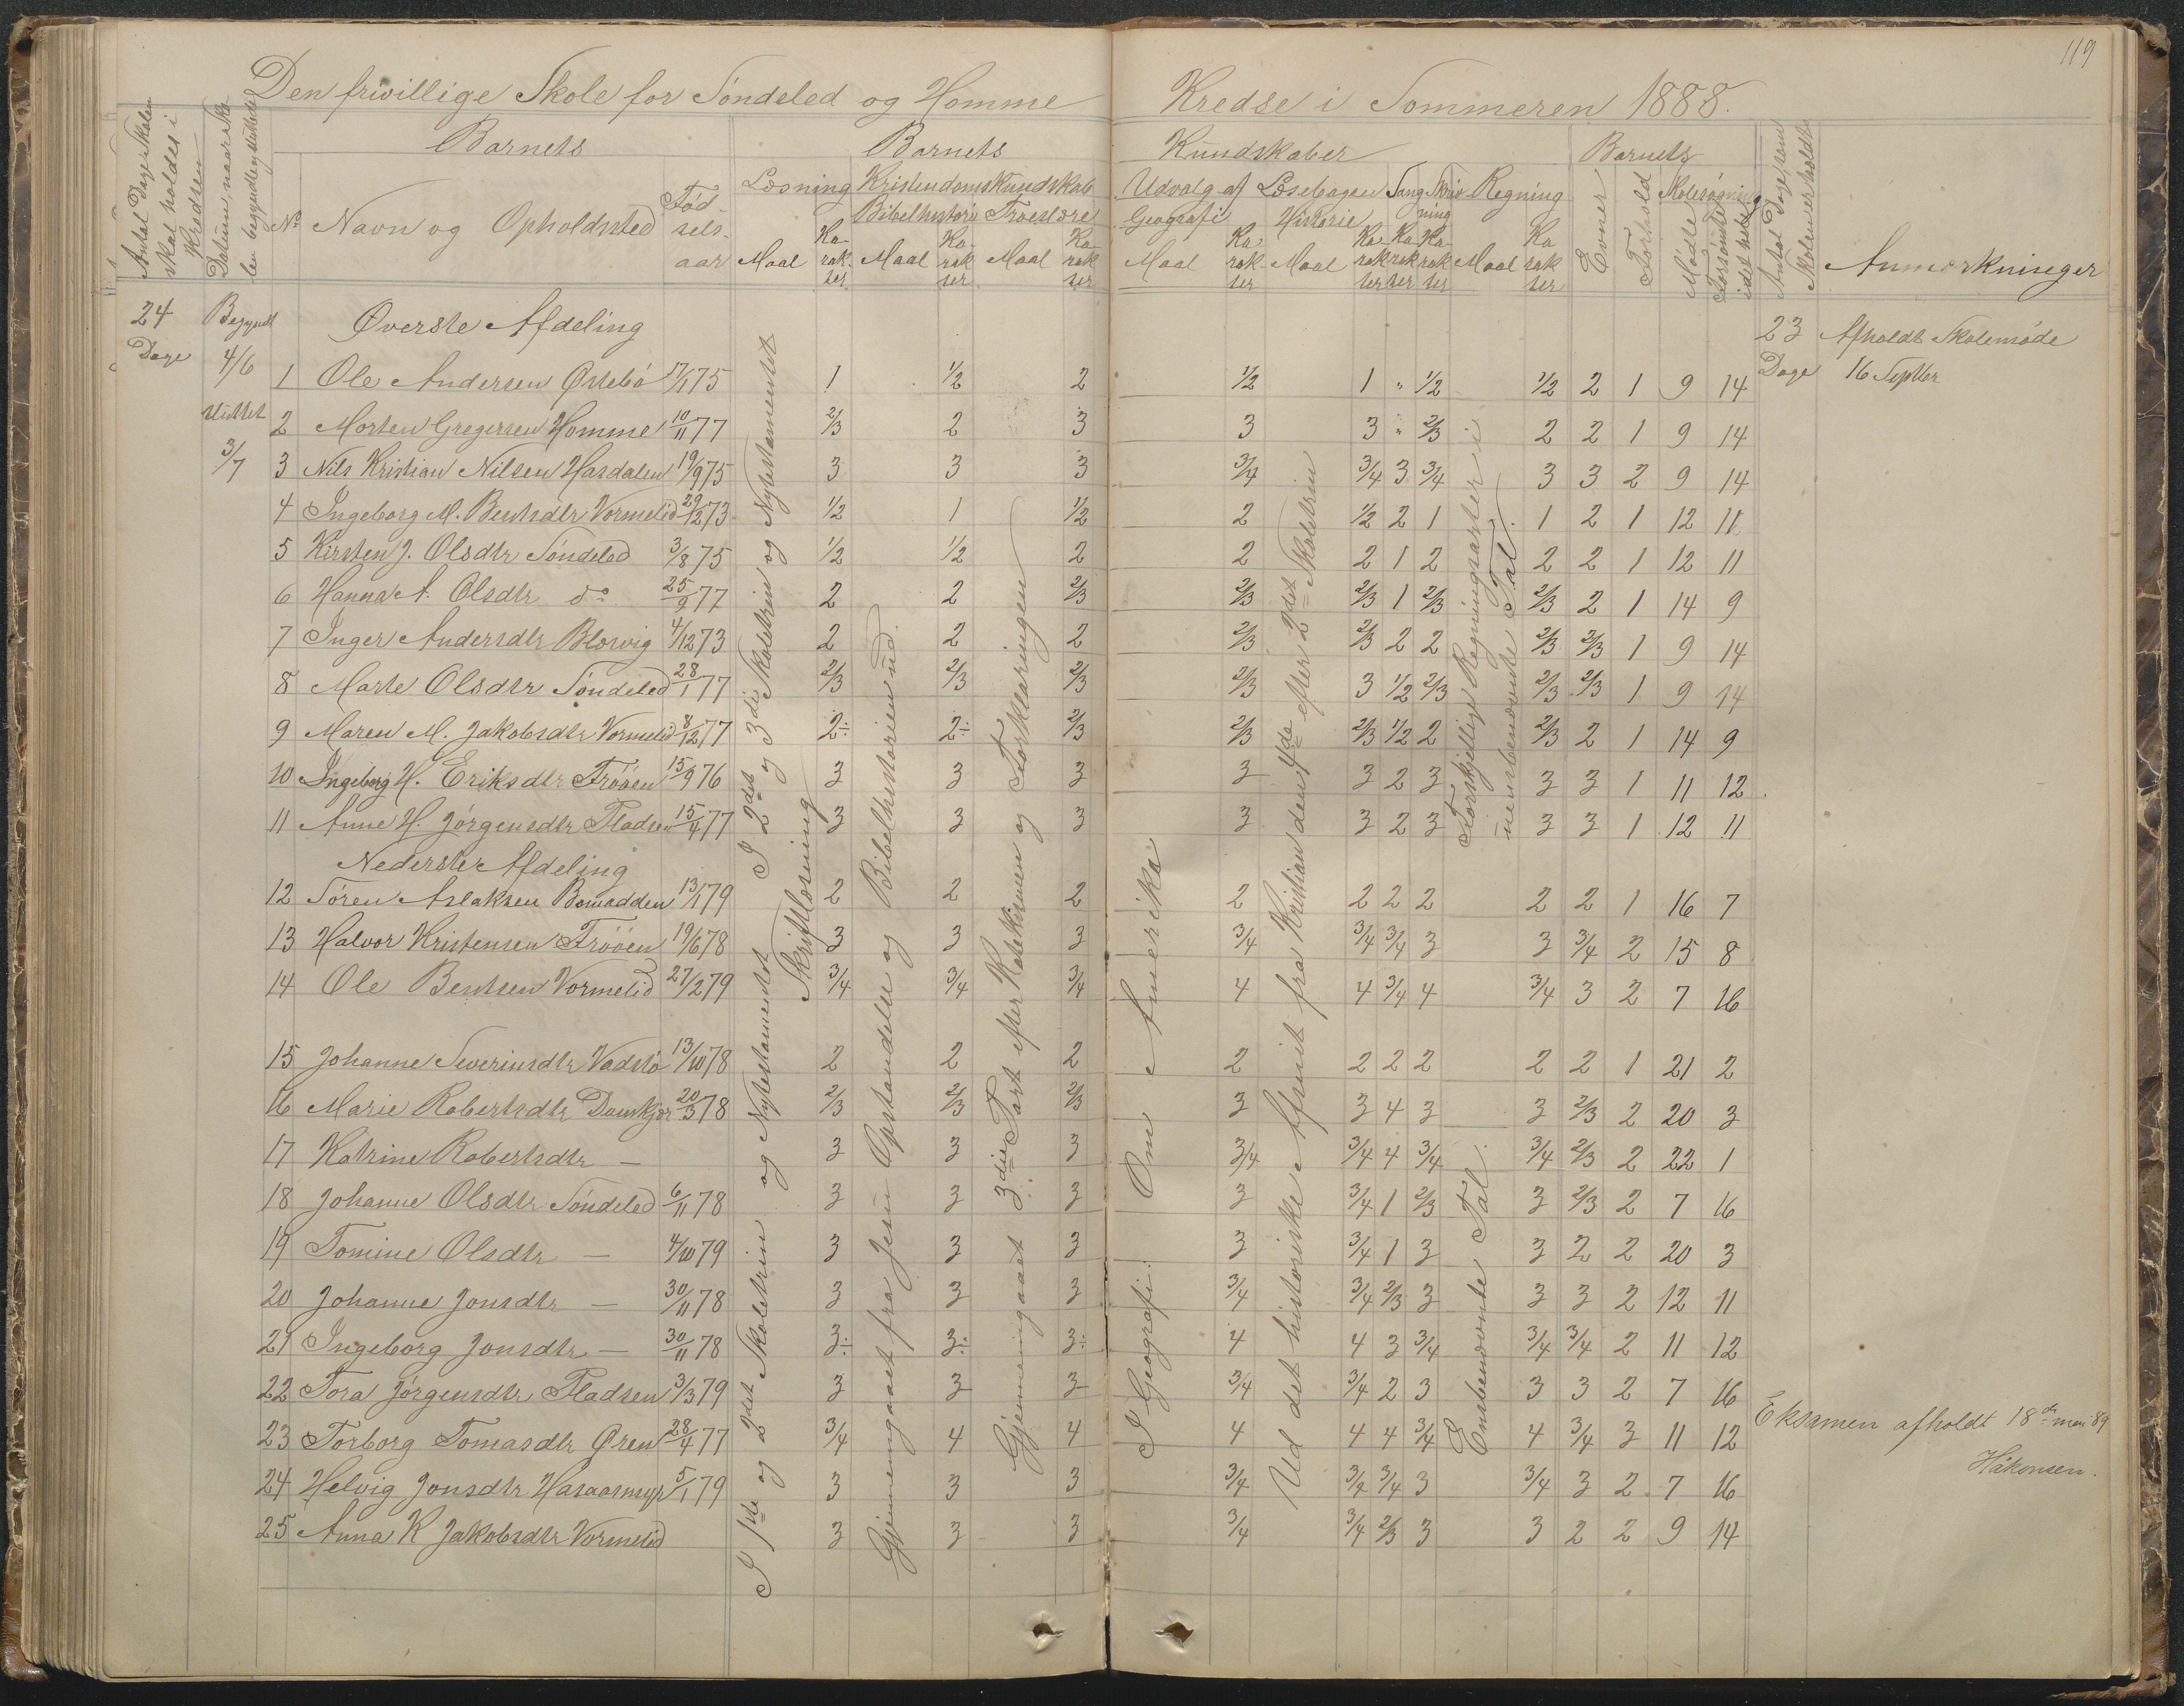 119
Den frivillige Skole for Söndeled og Homme Kredse i Sommeren 1888.
Antal Dage Skolen skal holdes i Kredsen
Datum, naar Skolen begynder og slutter
Barnets
Barnets Kundskaber
Barnets
Antal Dage som Skolen er holdt
Anmærkninger
No Navn og Opholdssted Fødselsaar
Læsning Kristendomskundskab Udvalg af Læsebogen Sang Skrivning Regning Evner Forhold Skolesøgning
Bibelhistorie Troeslære Geografi Historie Mødte Forsømte i det hele
Maal Karakter Maal Karakter Maal Karakter Maal Karakter Maal Karakter Karakter Karakter Maal Karakter
24 Dage
Begyndt 4/6
sluttet 3/7
23 Dage
Afholdt Skolemøde
16 Septbr
Øverste Afdeling
1 Ole Andersen Østebö 17/1 75 1 1/2 2 1/2 1 " 1/2 1/2 2 1 9 14
2 Morten Gregersen Homme 10/11 77 2/3 2 3 3 3 " 2/3 2 2 1 9 14
3 Nils Kristian Nilsen Hasdalen 19/9 75 3 3 3 3/4 3/4 3 3/4 3 3 2 9 14
4 Ingeborg M. Bentsdtr Vormelid 29/12 73 1/2 1 1/2 2 1/2 2 1 1 2 1 12 11
5 Kirsten J. Olsdtr Söndeled 3/8 75 1/2 1/2 2 2 2 1 2 2 2 1 12 11
6 Hanna A. Olsdtr do 25/9 77 2 2 2/3 2/3 2/3 1 2/3 2/3 2 1 14 9
7 Inger Andersdtr Blosvig 4/12 73 2 2 2 2/3 2/3 2 2 2/3 2/3 1 9 14
8 Marte Olsdtr Söndeled 28/1 77 2/3 2/3 2/3 2/3 3 1/2 2/3 2/3 2/3 1 9 14
9 Maren M. Jakobsdtr Vormelid 8/12 77 2÷ 2÷ 2/3 2/3 2/3 1/2 2 2/3 2 1 14 9
10 Ingeborg H. Eriksdtr Frööen 15/9 76 3 3 3 3 3 2 3 3 3 1 11 12
11 Anne H. Jörgensdtr Fladsen 15/4 77 3 3 3 3 3 2 3 3 3 1 12 11
Nederste Afdeling
12 Sören Aslaksen Bomadden 13/1 79 2 2 2 2 2 2 2 2 2 1 16 7
13 Halvor Kristensen Frööen 19/6 78 3 3 3 3/4 3/4 3/4 3 3 3/4 2 15 8
14 Ole Bentsen Vormelid 27/2 79 3/4 3/4 3/4 4 4 3/4 4 3/4 3 2 7 16
15 Johanne Severinsdtr Vadstö 13/10 78 2 2 2 2 2 2 2 2 2 1 21 2
16 Marie Robertsdtr Damkjær 20/3 78 2/3 2/3 2/3 3 3 4 3 3 2/3 2 20 3
17 Katrine Robertsdtr — 3 3 3 3/4 3/4 4 3/4 3/4 2/3 2 22 1
18 Johanne Olsdtr Söndeled 6/11 78 3 3 3 3 3/4 1 2/3 3 2/3 2 7 16
19 Tomine Olsdtr — 4/10 79 3 3 3 3 3/4 1 3 3 2 2 20 3
20 Johanne Jonsdtr — 30/11 78 3 3 3 3/4 3/4 2/3 3 3 3 2 12 11
21 Ingeborg Jonsdtr — 30/11 78 3÷ 3÷ 3÷ 4 4 3 3/4 3/4 3/4 2 11 12
22 Tora Jörgensdtr Fladsen 3/3 79 3 3 3 3/4 3/4 2 3 3 3 2 7 16
23 Torborg Tomasdtr Øren 28/4 77 3/4 4 4 4 4 4 3/4 4 3/4 3 11 12
24 Helvig Jonsdtr Hasaasmyr 5/1 79 3 3 3 3/4 3/4 3/4 3 3/4 3 2 7 16
25 Anna K Jakobsdtr Vormelid 3 3 3 3/4 3/4 2/3 3 3 2 2 9 14
I 1ste og 2det Skoletrin og Nytestamentet
I 2det og 3die Skoletrin og Nytestamentet
Skriftlæsning
Gjennemgaaet fra Jesu Opstandelse og Bibelhistorien ud.
Gjennemgaaet 3die Part efter Katekismen og Forklaringen
I Geografi: Om Amerika
Ud det historiske Afsnit fra Kristian den 4de efter 2det Skoletrin
Forskjellige Regningsarter i uensbenævnte Tal.
Ensbenævnte Tal.
Eksamen afholdt 18de mai 89
Håkonsen.